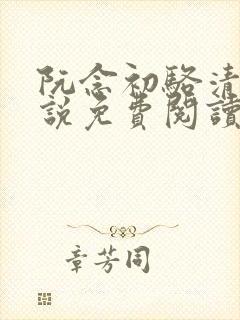 阮念初駱清
說免費閱讀
章芳同